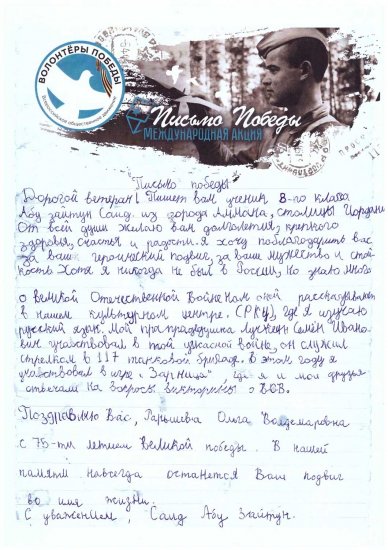 ВОЛОНТЁРЫ ПОБЕДЫ
Всероссийское общественное движение
Письмо Победы
МЕЖДУНАРОДНАЯ АКЦИЯ
"Письмо победы"
Дорогой ветеран! Пишет вам ученик 8-го класса
Абу зайтун Саид. из города Аммана, столицы Иордании
От всей души желаю вам долголетия, крепкого
здоровья, счастья и радости. Я хочу поблагодарить вас
за ваш героический подвиг, за ваш мужество и стой-
кость Хотя я никогда не был в России, но знаю много
о великой Отечественной Войне Нам о ней рассказывают
в нашем культурном центре, (РКЦ), где Я изучаю
русский язык. Мой прапрадедушка Семён Ивано-
вич участвовал в этой ужасной войне, он служил
стрелком в 117 танковой бригаде. В этом году я
участвовал в игре "Зарница" где я и мои друзья
отвечали на вопросы викторины о ВОВ.
Поздравляю Вас, Ольга Вольдемаровна
с 75-ти летием Великой победы. В нашей
памяти навсегда останется Ваш подвиг
во имя жизни.
С уважением, Саид Абу Зайтун.